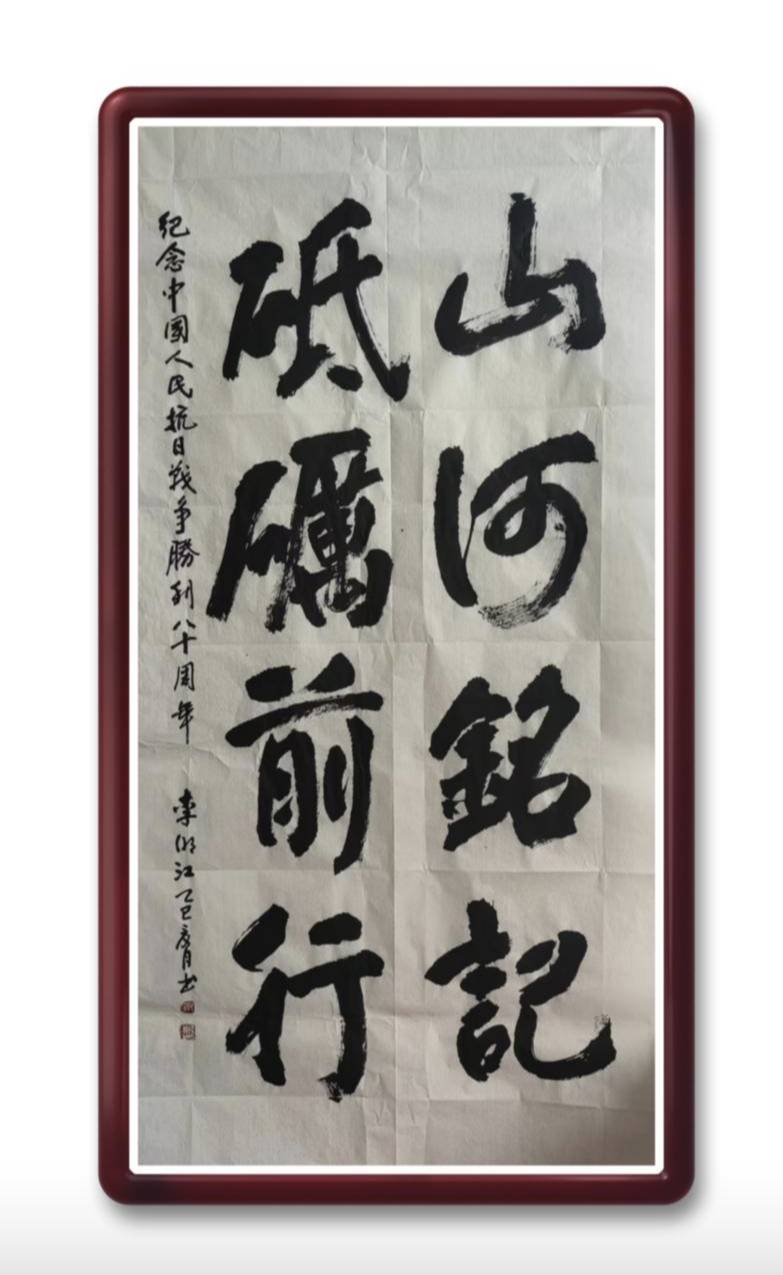 山河銘記
砥礪前行
紀念中國人民抗日戰争勝利八十周年
李 江乙巳 月书